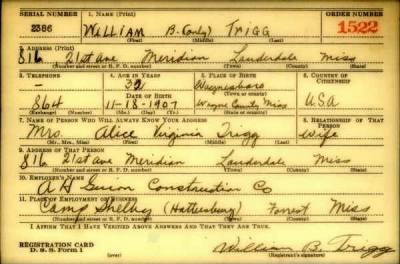 SERIAL NUMBER 1. NAME (Print) ORDER NUMBER
2386 WILLIAM B. (only) TRIGG 1522
(First) (Middle) (Last)
2. ADDRESS (Print)
816 21st ave Meridian Lauderdale Miss
(Number and street or R. F. D. number) (Town) (County) (State)
3. TELEPHONE 4. AGE IN YEARS 5. PLACE OF BIRTH 6. COUNTRY OF CITIZENSHIP
- 32 Waynesboro
DATE OF BIRTH (Town or county)
864 11-18-1907 Wayne County Miss U.S.A.
(Exchange) (Number) (Mo.) (Day) (Yr.) (State or country)
7. NAME OF PERSON WHO WILL ALWAYS KNOW YOUR ADDRESS 8. RELATIONSHIP OF THAT PERSON
Mrs. Alice Virginia Trigg Wife
(Mr., Mrs., Miss) (First) (Middle) (Last)
9. ADDRESS OF THAT PERSON
816 21st ave Meridian Lauderdale Miss
(Number and street or R. F. D. number) (Town) (County) (State)
10. EMPLOYER'S NAME
A H Construction Co
11. PLACE OF EMPLOYMENT OR BUSINESS
Camp Shelby (Hattiesburg) Forrest Miss
(Number and street or R. F. D. number) (Town) (County) (State)
I AFFIRM THAT I HAVE VERIFIED ABOVE ANSWERS AND THAT THEY ARE TRUE.
REGISTRATION CARD
D. S. S. Form 1 (over) William B. Trigg
(Registrant's signature)